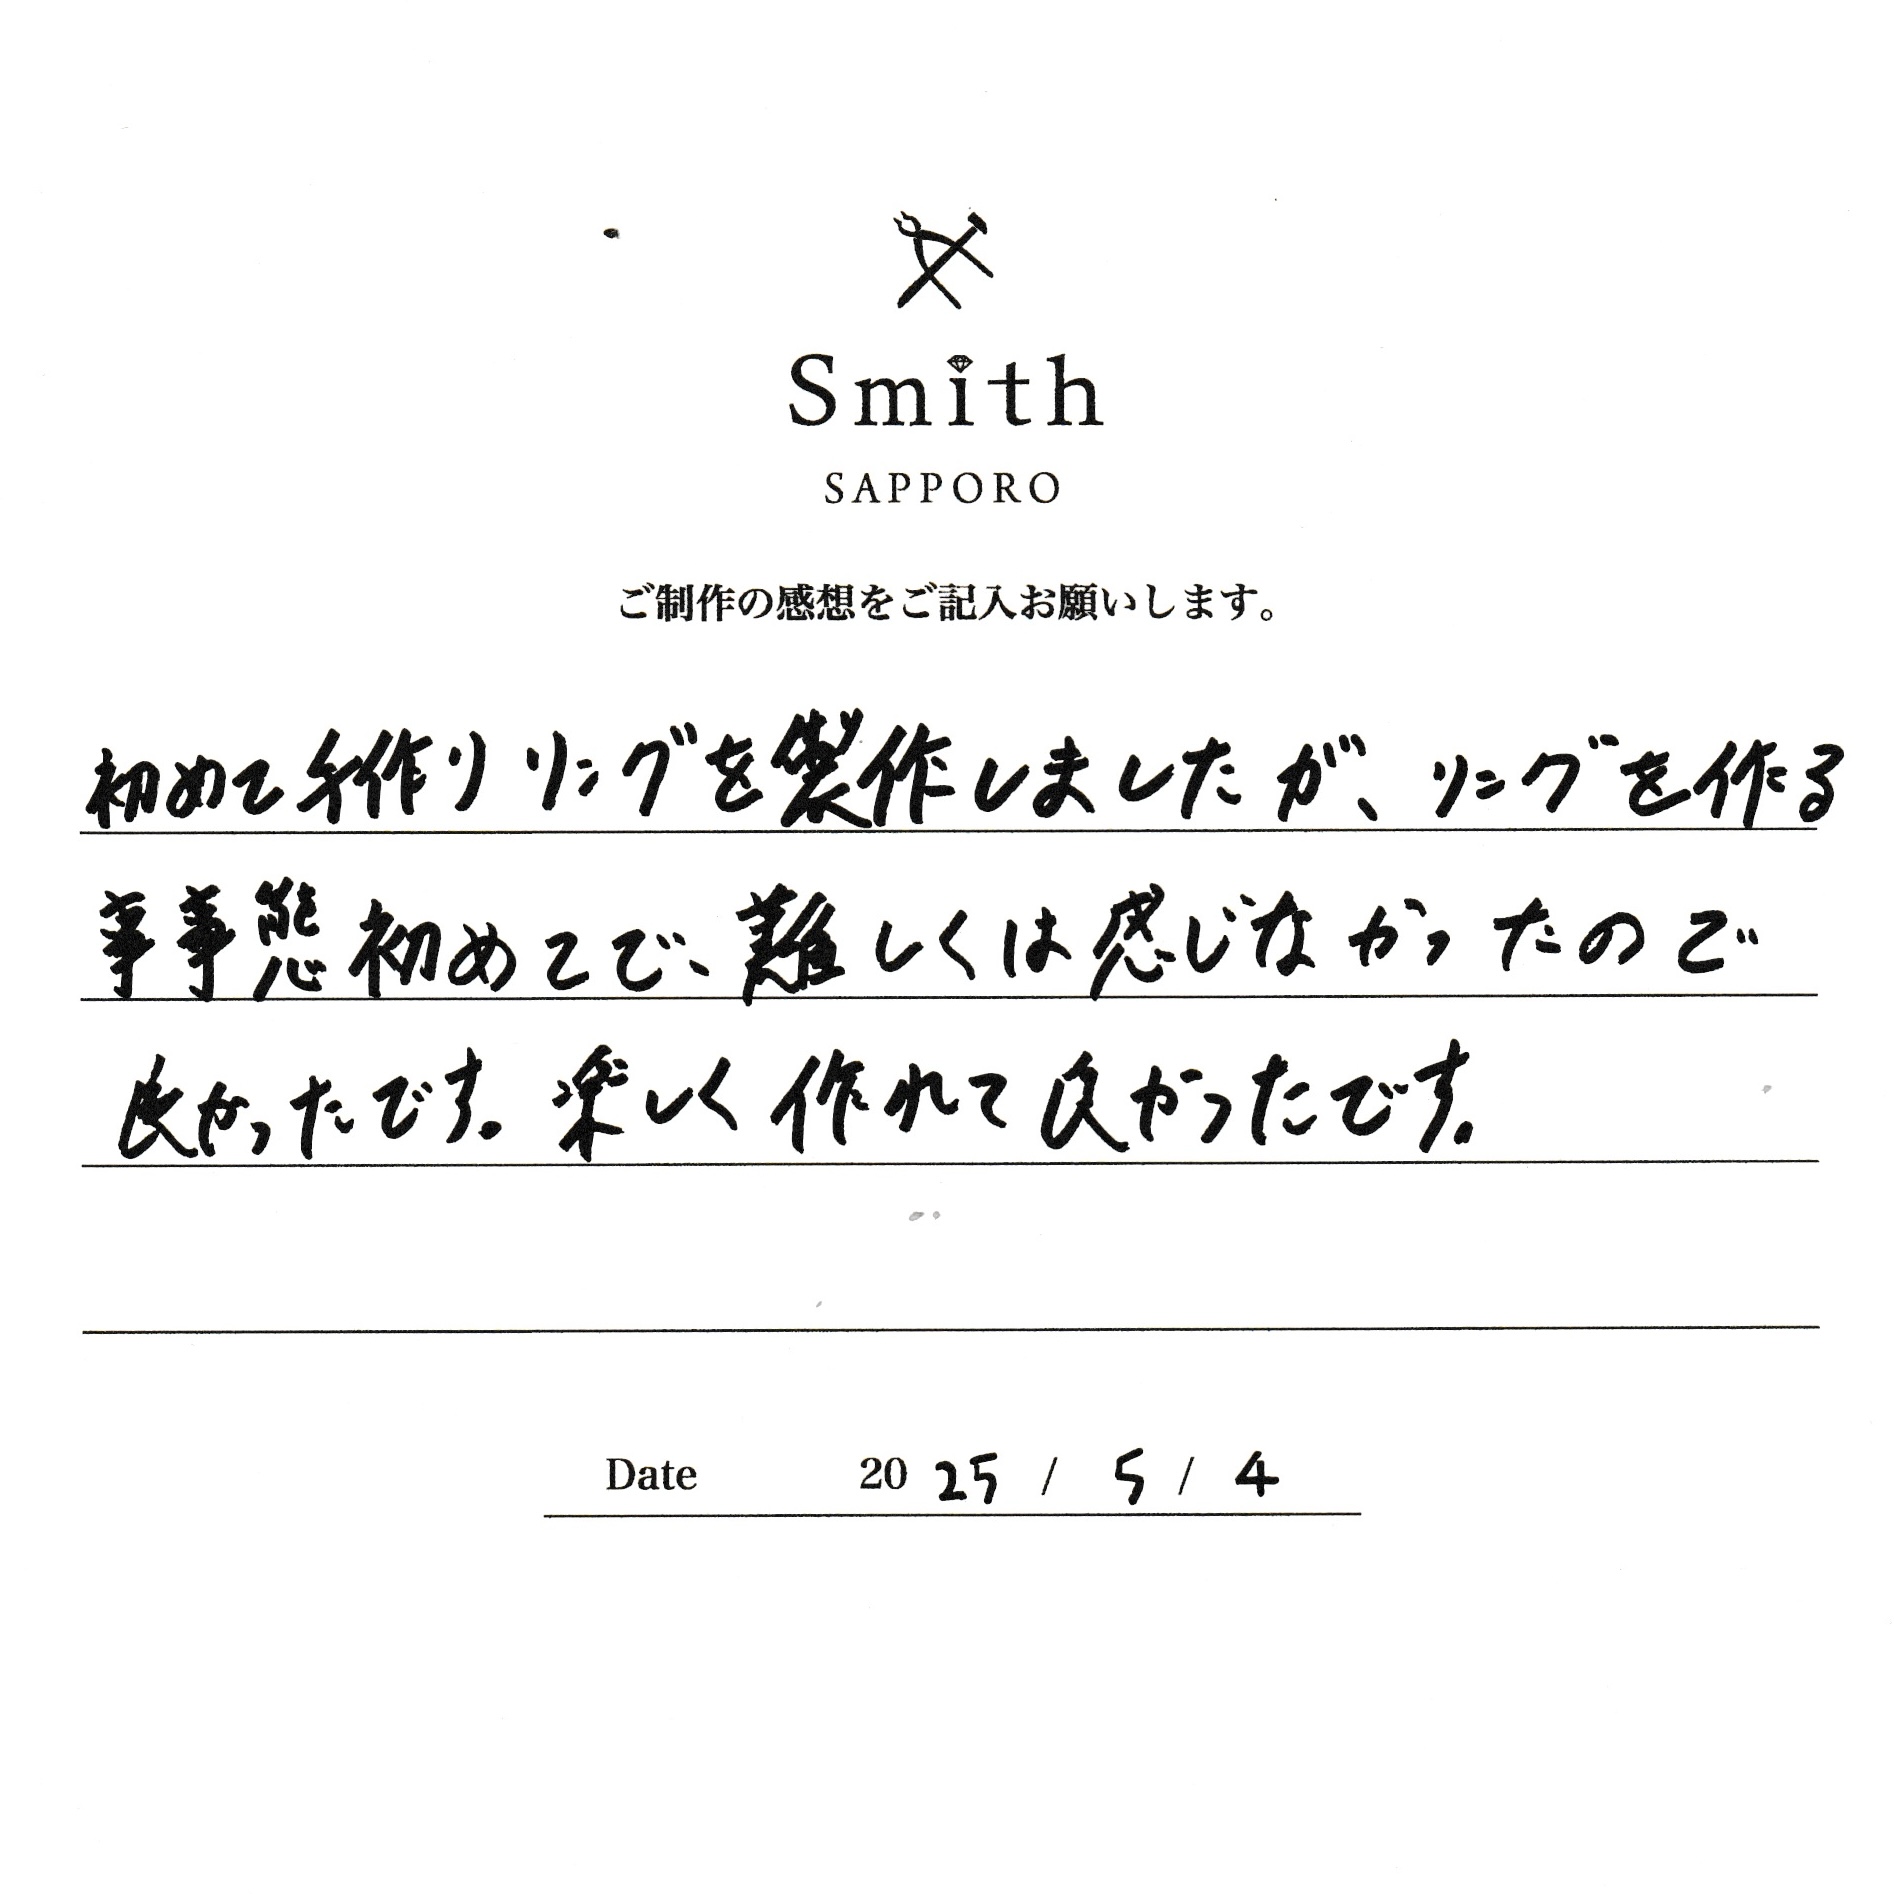 Smith
SAPPORO
ご制作の感想をご記入お願いします。
初めて手作りリングを製作しましたが、リングを作る
事事態初めてで、難しくは感じなかったので
良かったです。楽しく作れて良かったです。
Date 2025 / 5 / 4